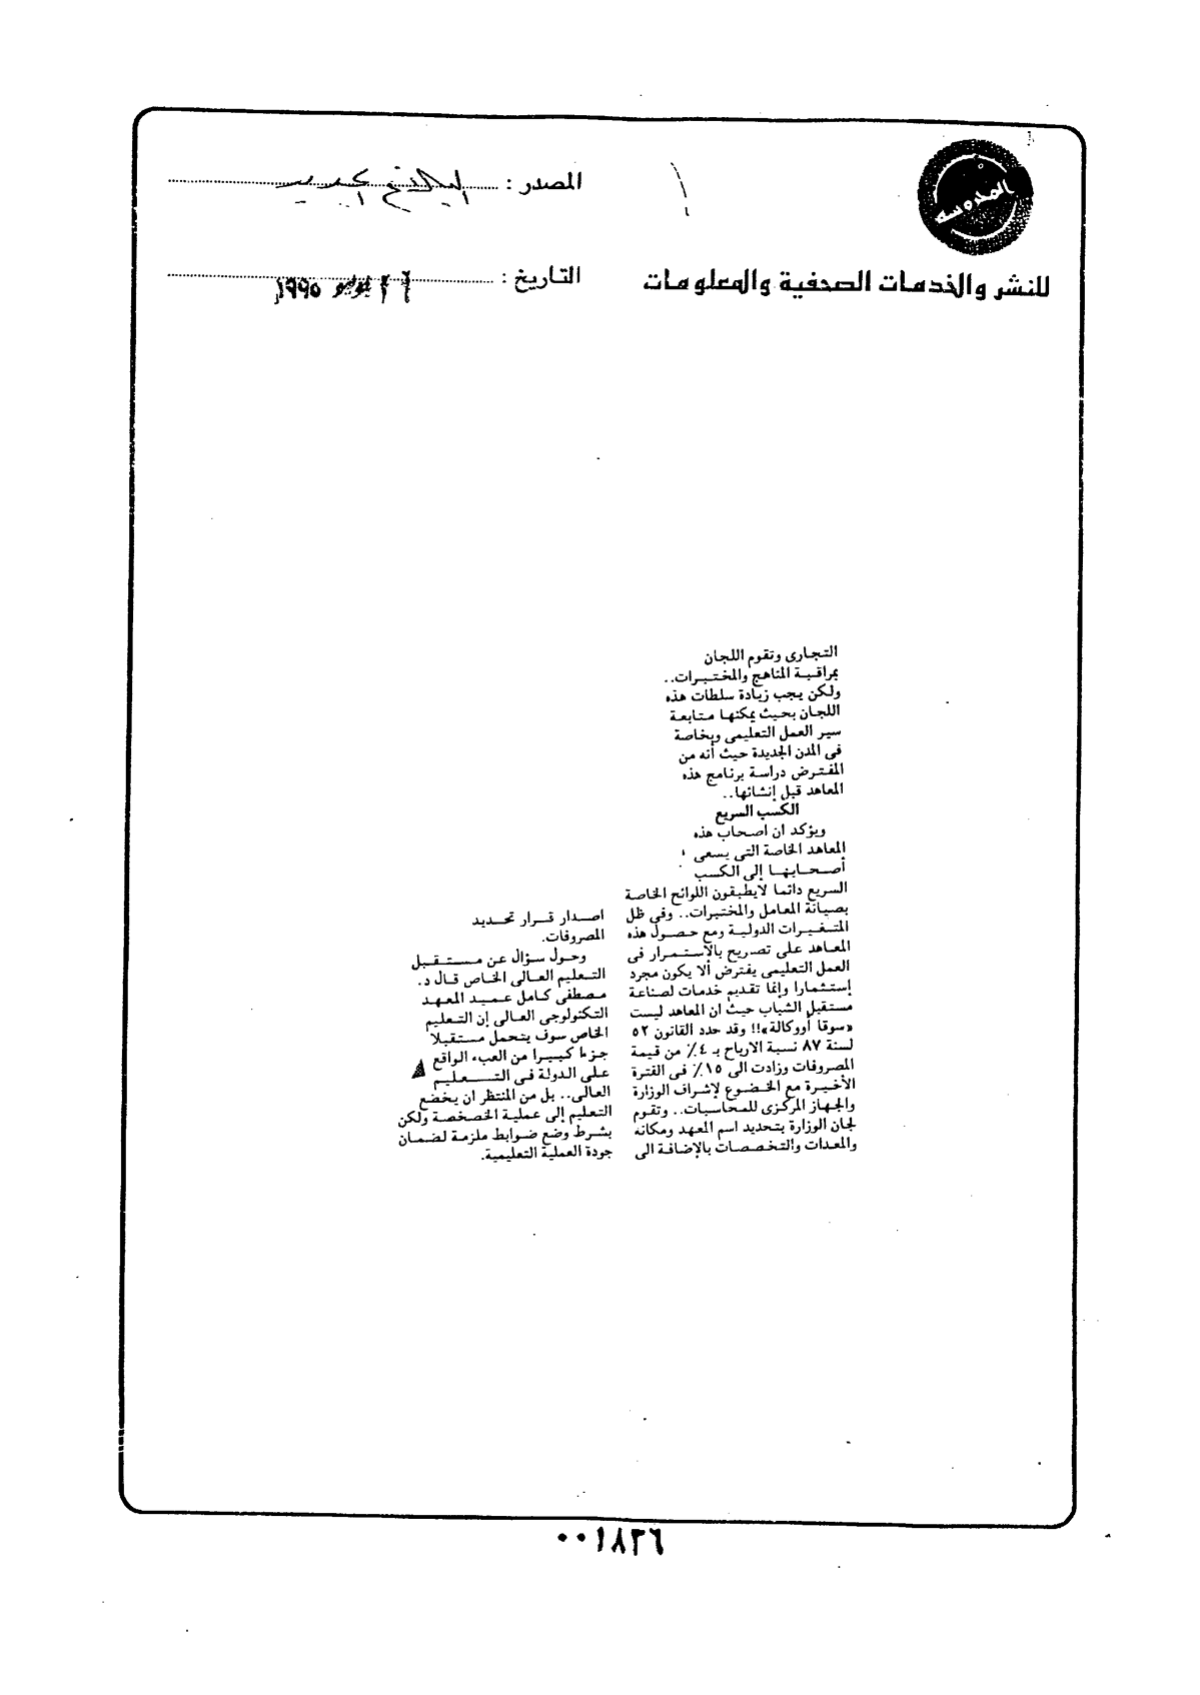 المحروسة
للنشر والخدمات الصحفية والمعلومات
المصدر :
التاريخ : ٢٦ يوليو ١٩٩٥
التجارى وتقوم اللجان
بمراقبة المناهج والمختبرات..
ولكن يجب زيادة سلطات هذه
اللجان بحيث يمكنها متابعة
سير العمل التعليمى وبخاصة
فى المدن الجديدة حيث أنه من
المفترض دراسة برنامج هذه
المعاهد قبل إنشائها..
الكسب السريع
ويؤكد ان اصحاب هذه
المعاهد الخاصة التى يسعى
أصحابها إلى الكسب
السريع دائما لايطبقون اللوائح الخاصة
بصيانة المعامل والمختبرات.. وفى ظل
المتغيرات الدولية ومع حصول هذه
المعاهد على تصريح بالاستمرار فى
العمل التعليمى يفترض ألا يكون مجرد
إستثمارا وإنما تقديم خدمات لصناعة
مستقبل الشباب حيث ان المعاهد ليست
«سوقا أووكالة»!! وقد حدد القانون ٥٢
لسنة ٨٧ نسبة الارباح بـ ٤٪ من قيمة
المصروفات وزادت الى ١٥٪ فى الفترة
الأخيرة مع الخضوع لإشراف الوزارة
والجهاز المركزى للمحاسبات.. وتقوم
لجان الوزارة بتحديد اسم المعهد ومكانه
والمعدات والتخصصات بالإضافة الى
اصدار قرار تحديد
المصروفات.
وحول سؤال عن مستقبل
التعليم العالى الخاص قال د.
مصطفى كامل عميد المعهد
التكنولوجى العالى إن التعليم
الخاص سوف يتحمل مستقبلا
جزءا كبيرا من العبء الواقع
على الدولة فى التعليم
العالى.. بل من المنتظر ان يخضع
التعليم إلى عملية الخصخصة ولكن
بشرط وضع ضوابط ملزمة لضمان
جودة العملية التعليمية.
٠٠١٨٣٦